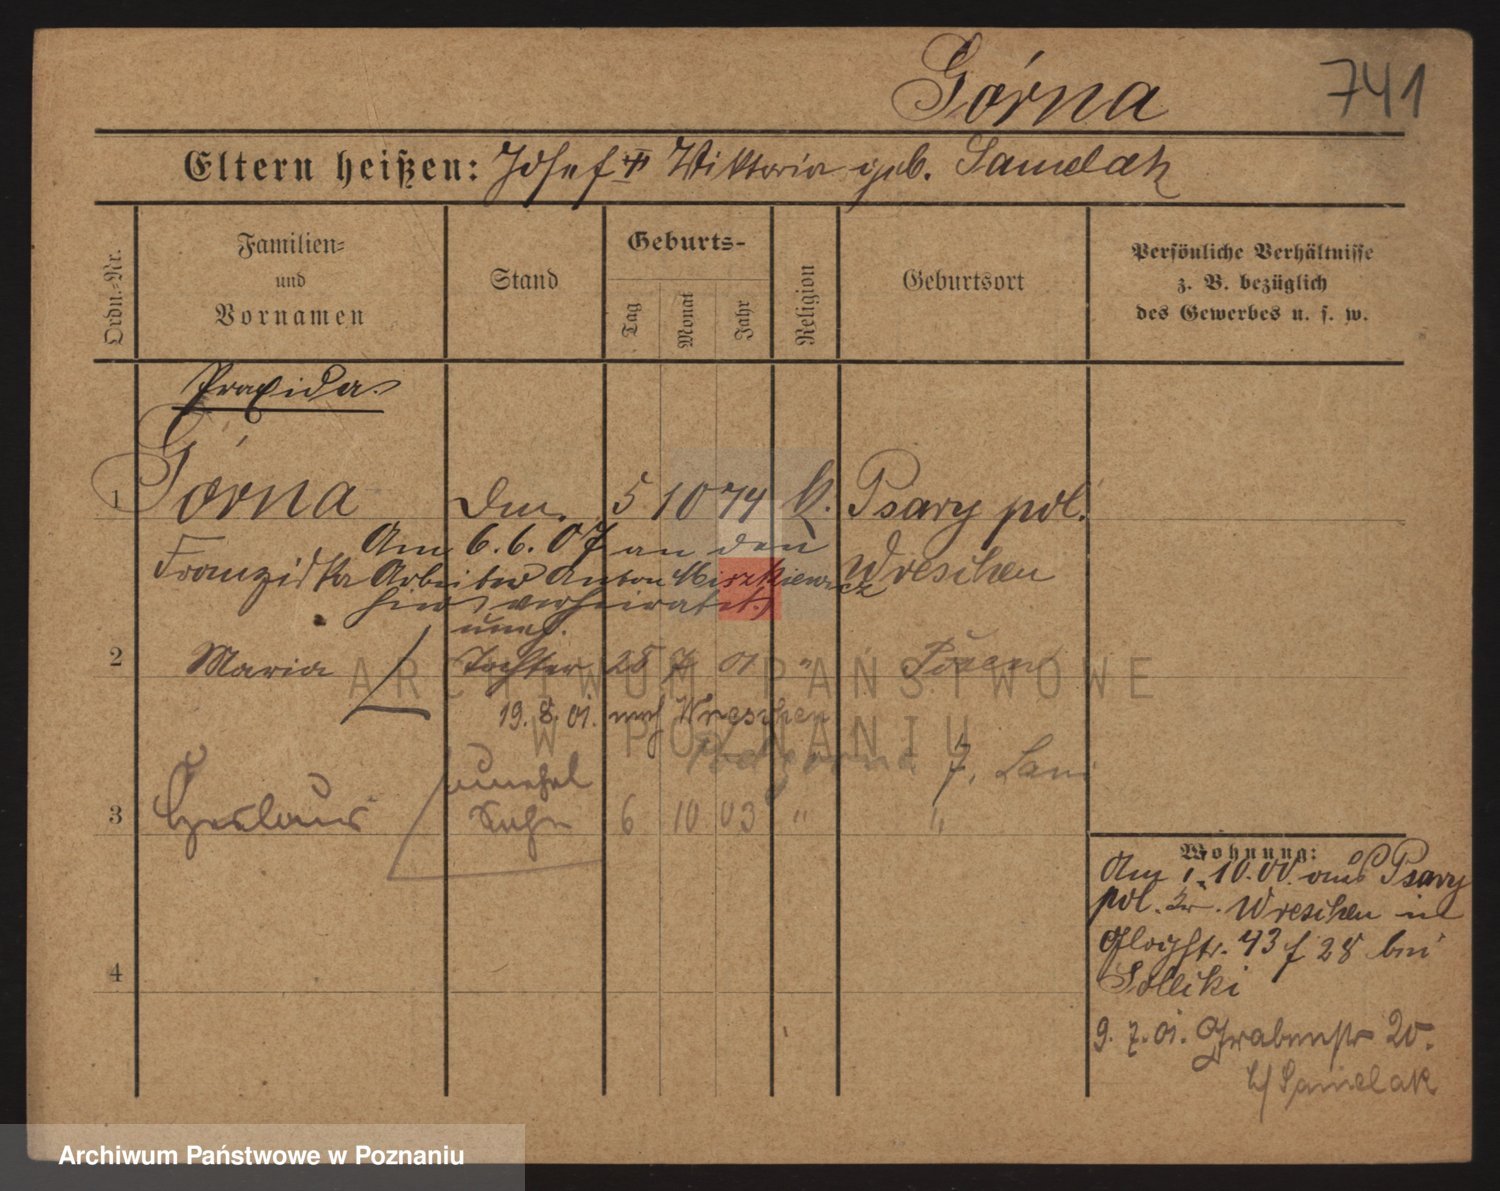 Górna 741
Eltern heißen: Josef u Wiktoria geb. Samelak
Ordn.-Nr.
Familien-
und
Vornamen
Stand
Geburts-
Tag
Monat
Jahr
Religion
Geburtsort
Persönliche Verhältnisse
z. B. bezüglich
des Gewerbes u. s. w.
Praxida
1 Górna 5 10 74 k. Psary pol.
Am 6.6.07 an den
Franziska Arbeiter Anton Miszkiewicz Wreschen
hier verheiratet.
unehl.
2 Maria Tochter 28 7 01 " Posen
19.8.01. nach Wreschen
7.
unehel
3 Czeslaus Sohn 6 10 03 " "
4
Wohnung:
Am 1.10.00. aus Psary
pol. Kr. Wreschen in
43 28 bei
Solliki
9.7.01. Grabenstr 20.
b/ Samelak
ARCHIWUM PAŃSTWOWE
W POZNANIU
Archiwum Państwowe w Poznaniu